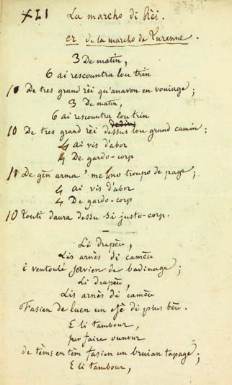 XLI La marcho di Rèi.
er. de la marcho de Turenne.
3 De matin,
6 ai rescountra lou trin
10 De tres grand rèi qu'anavon en vouiage;
3 De matin,
6 ai rescountra lou trin
10 De tres grand rèi dessus lou grand camin;
4 ai vis d'abor
4 De gardo-corp
10 De gèn arma 'me uno troupo de page;
4 ai vis d'abor
4 De gardo-corp
10 Touti daura dessu si justo-corp.
Li drapèu,
Lis arnès di camèu
Li drapèu,
Lis arnès di camèu
E li tambour,
per faire ounour
de tèms en tèm fasien brusi an tapage;
E li tambour,